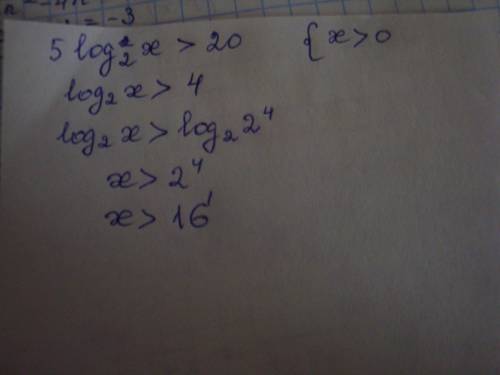 = -3
5 log₂²x > 20 {x > 0
log₂x > 4
log₂x > log₂2⁴
x > 2⁴
x > 16